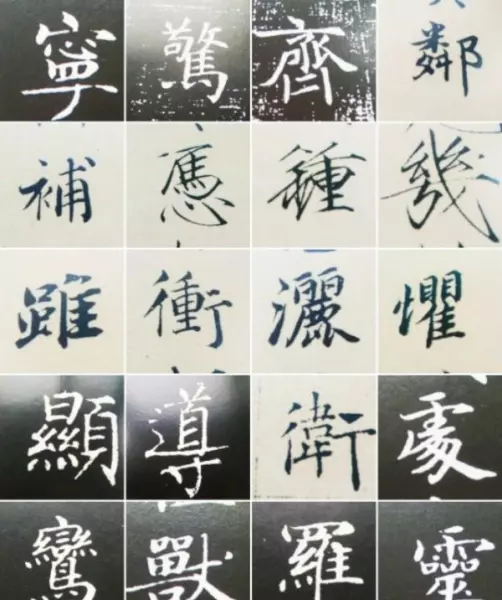 寧驚齊鄰
補憑鍾幾
雖衝灑懼
顯導衛處
鸞獸羅靈